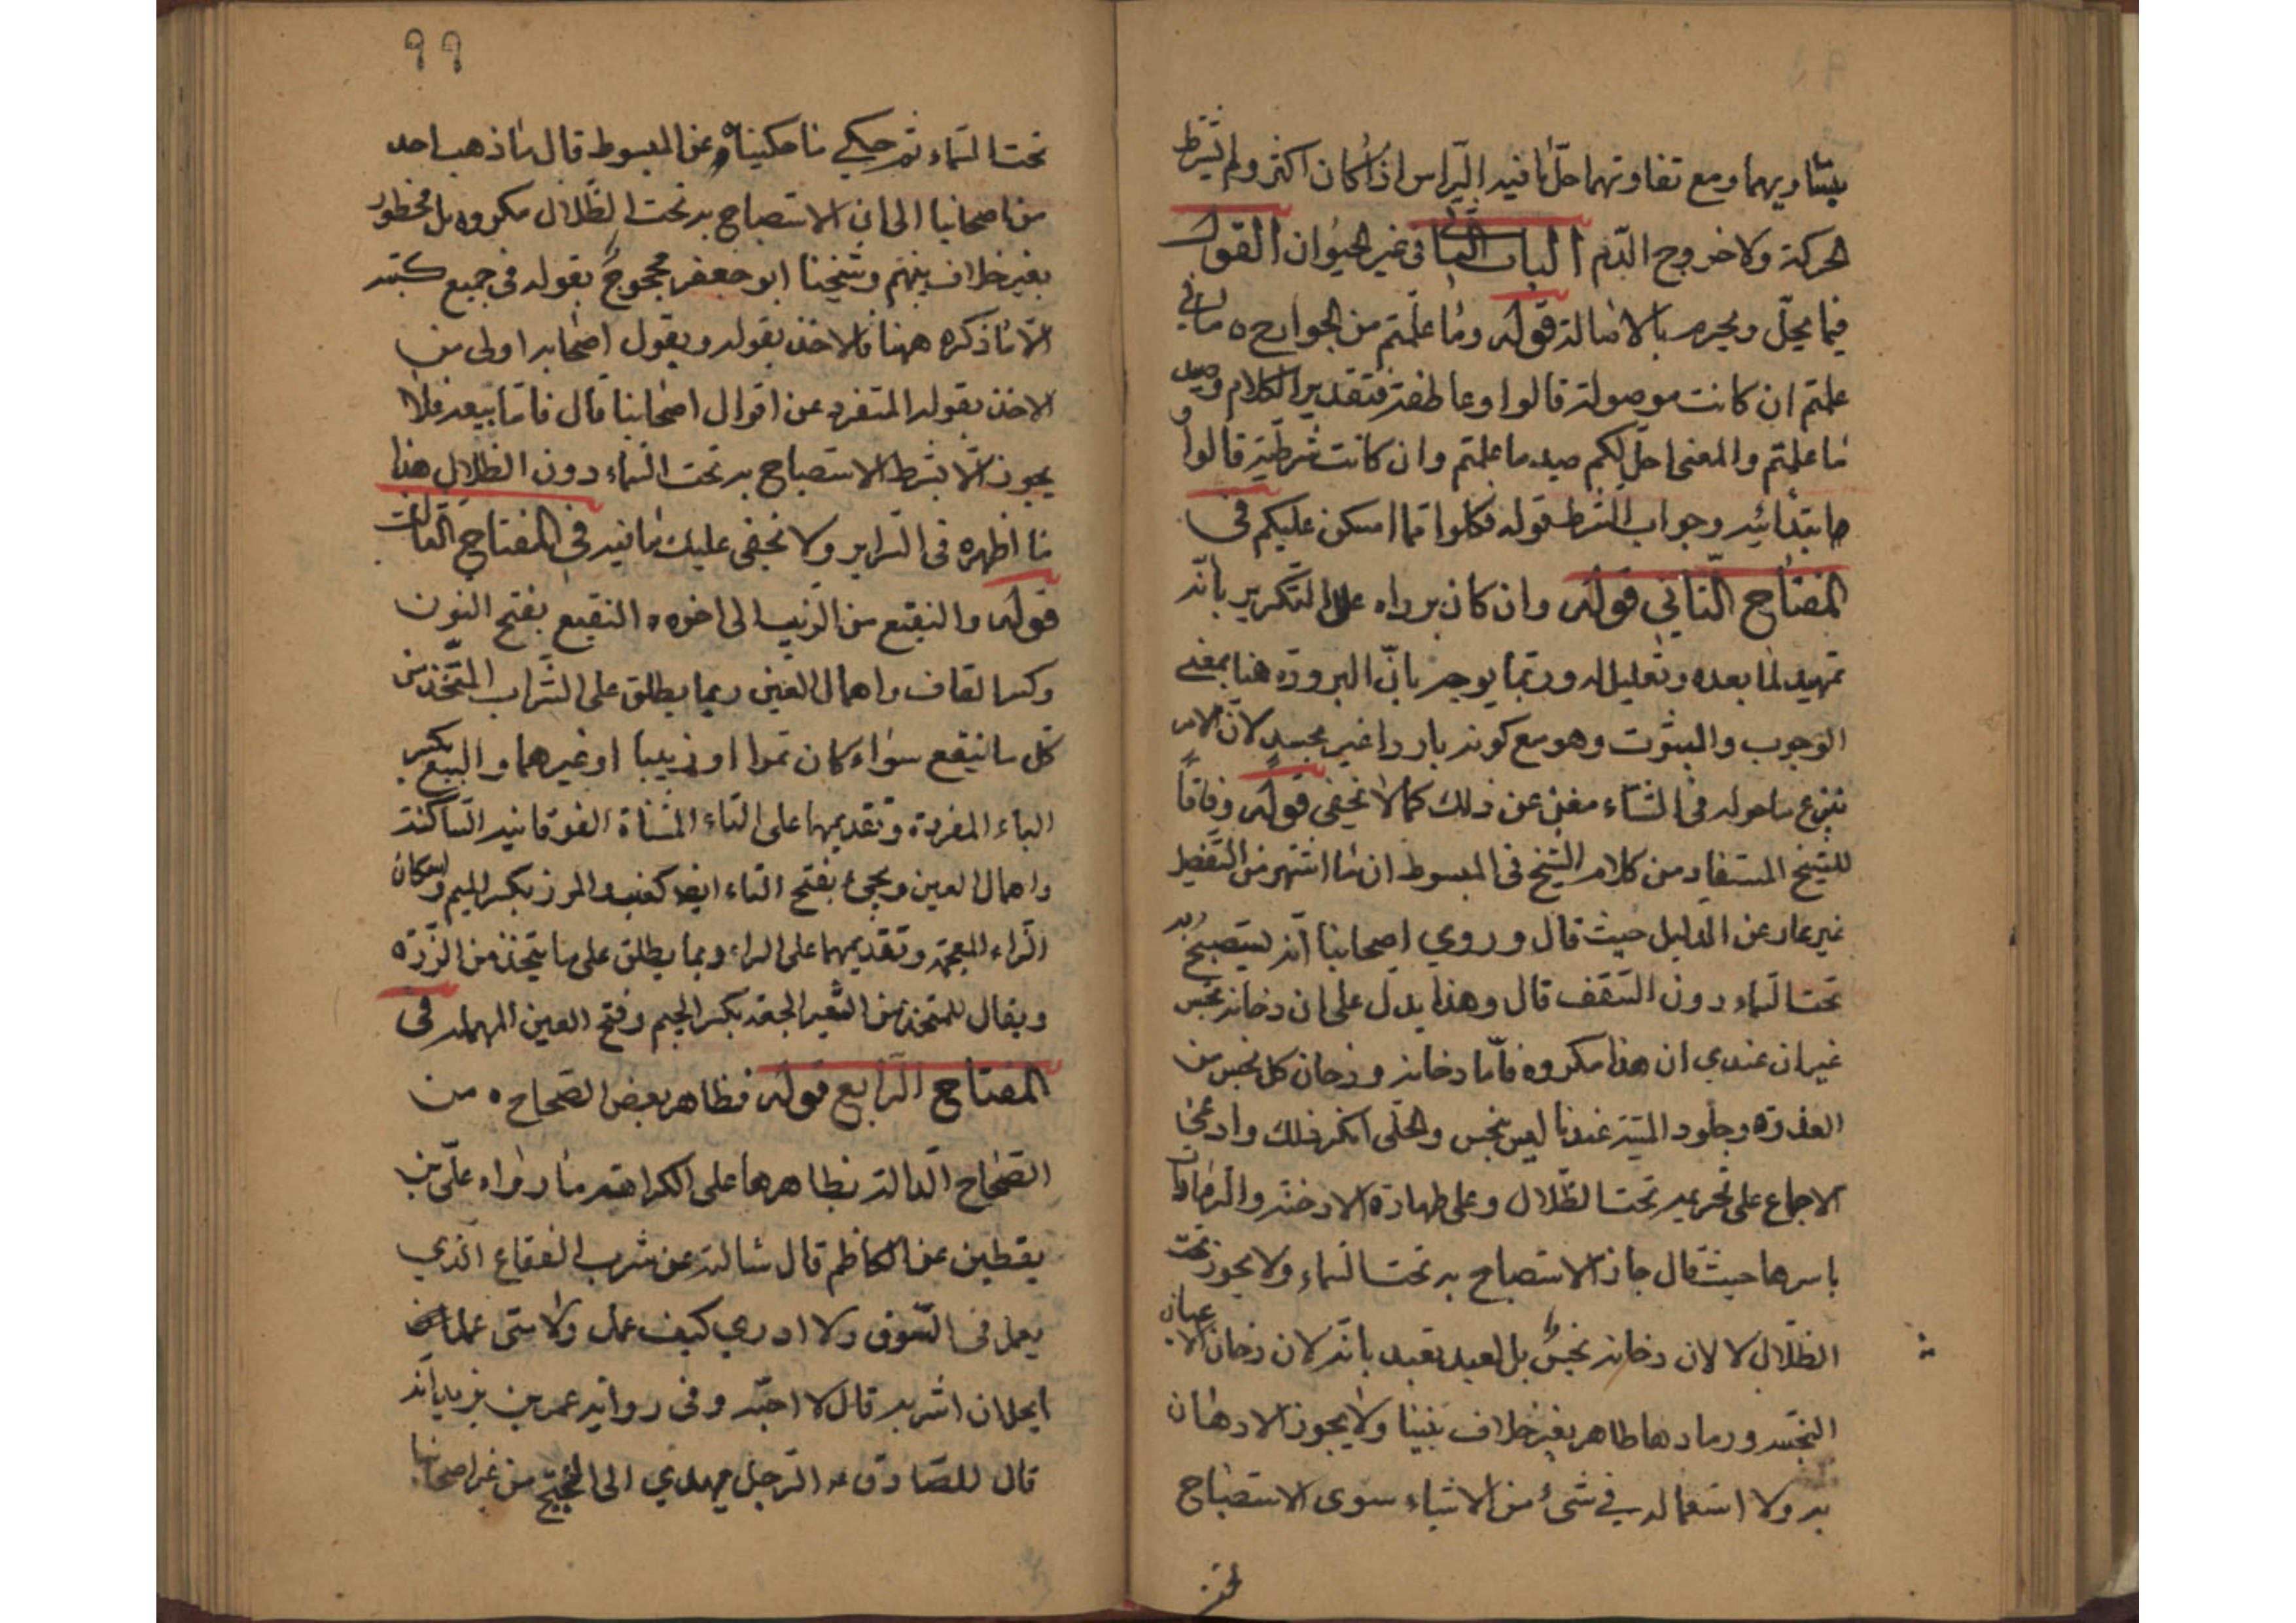 بتساويهما ومع تفاوتهما حلّ ما فيه الراس اذا كان اكثر ولم يشترط
الحركة ولا خروج الدّم الباب الثاني في غير الحيوان القول
فيما يحلّ ويحرم بالاصالة قوله وما علّمتم من الجوارح ه ما في
علمتم ان كانت موصولة قالوا وعاطفة فتقدير الكلام وصيد
ما علمتم والمعنى احلّ لكم صيد ما علمتم وان كانت شرطيّة قالوا و
ها ابتدائيه وجواب الشرط قوله فكلوا مما امسكن عليكم في
المفتاح الثاني قوله وان كان برداه علل التكرير بانّه
تمهيد لما بعده وتعليل له وربّما يوجه بانّ البرودة هنا بمعنى
الوجوب والثبوت وهو مع كونه باردا غير مجيد لان الامر
بنزع ما حوله في الشتاء مغن عن ذلك كما لا يخفى قوله وفاقا
للشيخ المستفاد من كلام الشيخ في المبسوط ان ما اشتهر من التفصيل
غير عار عن الدليل حيث قال وروي اصحابنا انّه يستصبح به
تحت السّماء دون السّقف قال وهذا يدل على ان دخانه نجس
غير ان عندي ان هذا مكروه فامّا دخانه ودخان كل نجس من
العذرة وجلود الميتة عندنا ليس بنجس والحلّي انكر ذلك وادعى
الاجماع على تحريمه تحت الظّلال وعلى طهارة الادخنة والرمادات
باسرها حيث قال جاز الاستصباح به تحت السّماء ولا يجوز تحت
الظّلال لا لان دخانه نجسٌ بل لعبد تعبد بانّه لان دخان الاعيان
النجسه ورمادها طاهر بغير خلاف بيننا ولا يجوز الادهان
به ولا استعماله في شيء من الاشياء سوى الاستصباح
تحت
٩٩
تحت السّماء ثم حكي ما حكيناه عن المبسوط قال ما ذهب احد
من اصحابنا الى ان الاستصباح به تحت الظّلال مكروه بل محظور
بغير خلاف بينهم وشيخنا ابو جعفر محجوجٌ بقوله في جميع كتبه
الّا ما ذكره ههنا فالاخذ بقوله وبقول اصحابه اولى من
الاخذ بقوله المتفرد عن اقوال اصحابنا قال فاما بيعه فلا
يجوز الّا بشرط الاستصباح به تحت السّماء دون الظلال هذا
ما اظهره في السّراير ولا يخفى عليك ما فيه في المفتاح الثالث
قوله والنقيع من الزبيب الى اخره ه النقيع بفتح النون
وكسر القاف واهمال العين ربما يطلق على الشّراب المتّخذ من
كل ما ينقع سواء كان تمرا او زبيبا او غيرهما والبتع بكسر
الباء المفردة وتقديمها على التاء المثناة الفوقانيه السّاكنة
واهمال العين ويجيء بفتح التاء ايضا كعنب والمرز بكسر الميم واسكان
الزّاء المعجمة وتقديمها على الراء وبما يطلق على ما يتخذ من الذّرة
ويقال للمتخذ من الشّعير الجعة بكسر الجيم وفتح العين المهملة في
المفتاح الرّابع قوله فظاهر بعض الصّحاح ه من
الصّحاح الّدالة بظاهرها على الكراهة ما رواه علّي بن
يقطين عن الكاظم قال سالته عن شرب الفقاع الّذي
يعمل في السّوق ولا ادري كيف عمل ولا متى عمل
ايحل ان اشربه قال لا احبّه وفي رواية عمر بن يزيد انّه
قال للصّادق ع الرّجل يهدي الى البختج من غير اصحابنا